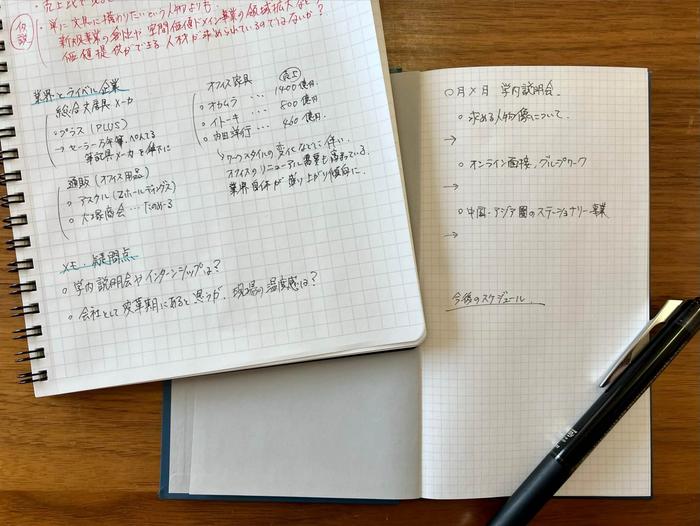 ・売上比で見る
・単に文具に携わりたいという人物よりも、
仮説
新規事業の創出や空間価値ドメイン事業の領域拡大など
価値提供ができる人材が求められているのではないか?
業界とライバル企業
総合文房具メーカー
・プラス (PLUS)
→ セーラー万年筆、ぺんてる
筆記具メーカーを傘下に
通販 (オフィス用品)
○ アスクル (Zホールディングス)
○ 大塚商会 … たのめーる
オフィス家具
売上
○ オカムラ … 1400億円
○ イトーキ … 800億円
○ 内田洋行 … 460億円
↳ ワークスタイルの変化などに伴い、
オフィスのリニューアル需要も高まっている。
業界自体が盛り上がり傾向に。
メモ・疑問点
○ 学内説明会やインターンシップは?
○ 会社として変革期にあると思うが、現場の温度感は?
○月×日 学内説明会
○ 求める人物像について
→
○ オンライン面接、グループワーク
→
○ 中国・アジア圏のステーショナリー事業
→
今後のスケジュール